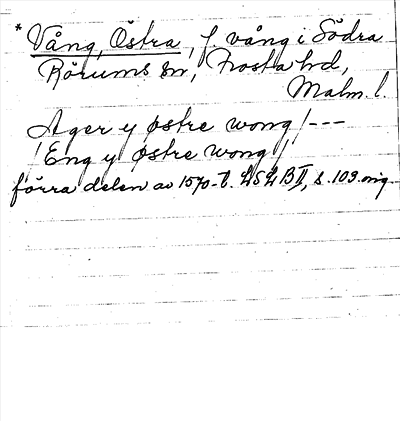 * Vång, Östra, f vång i Södra
Rörums sn, Frosta hd,
Malm. l.
Ager y østre wong / ---
/ Eng y østre wong /
förra delen av 1570-t. LSLB II, s. 109. orig.